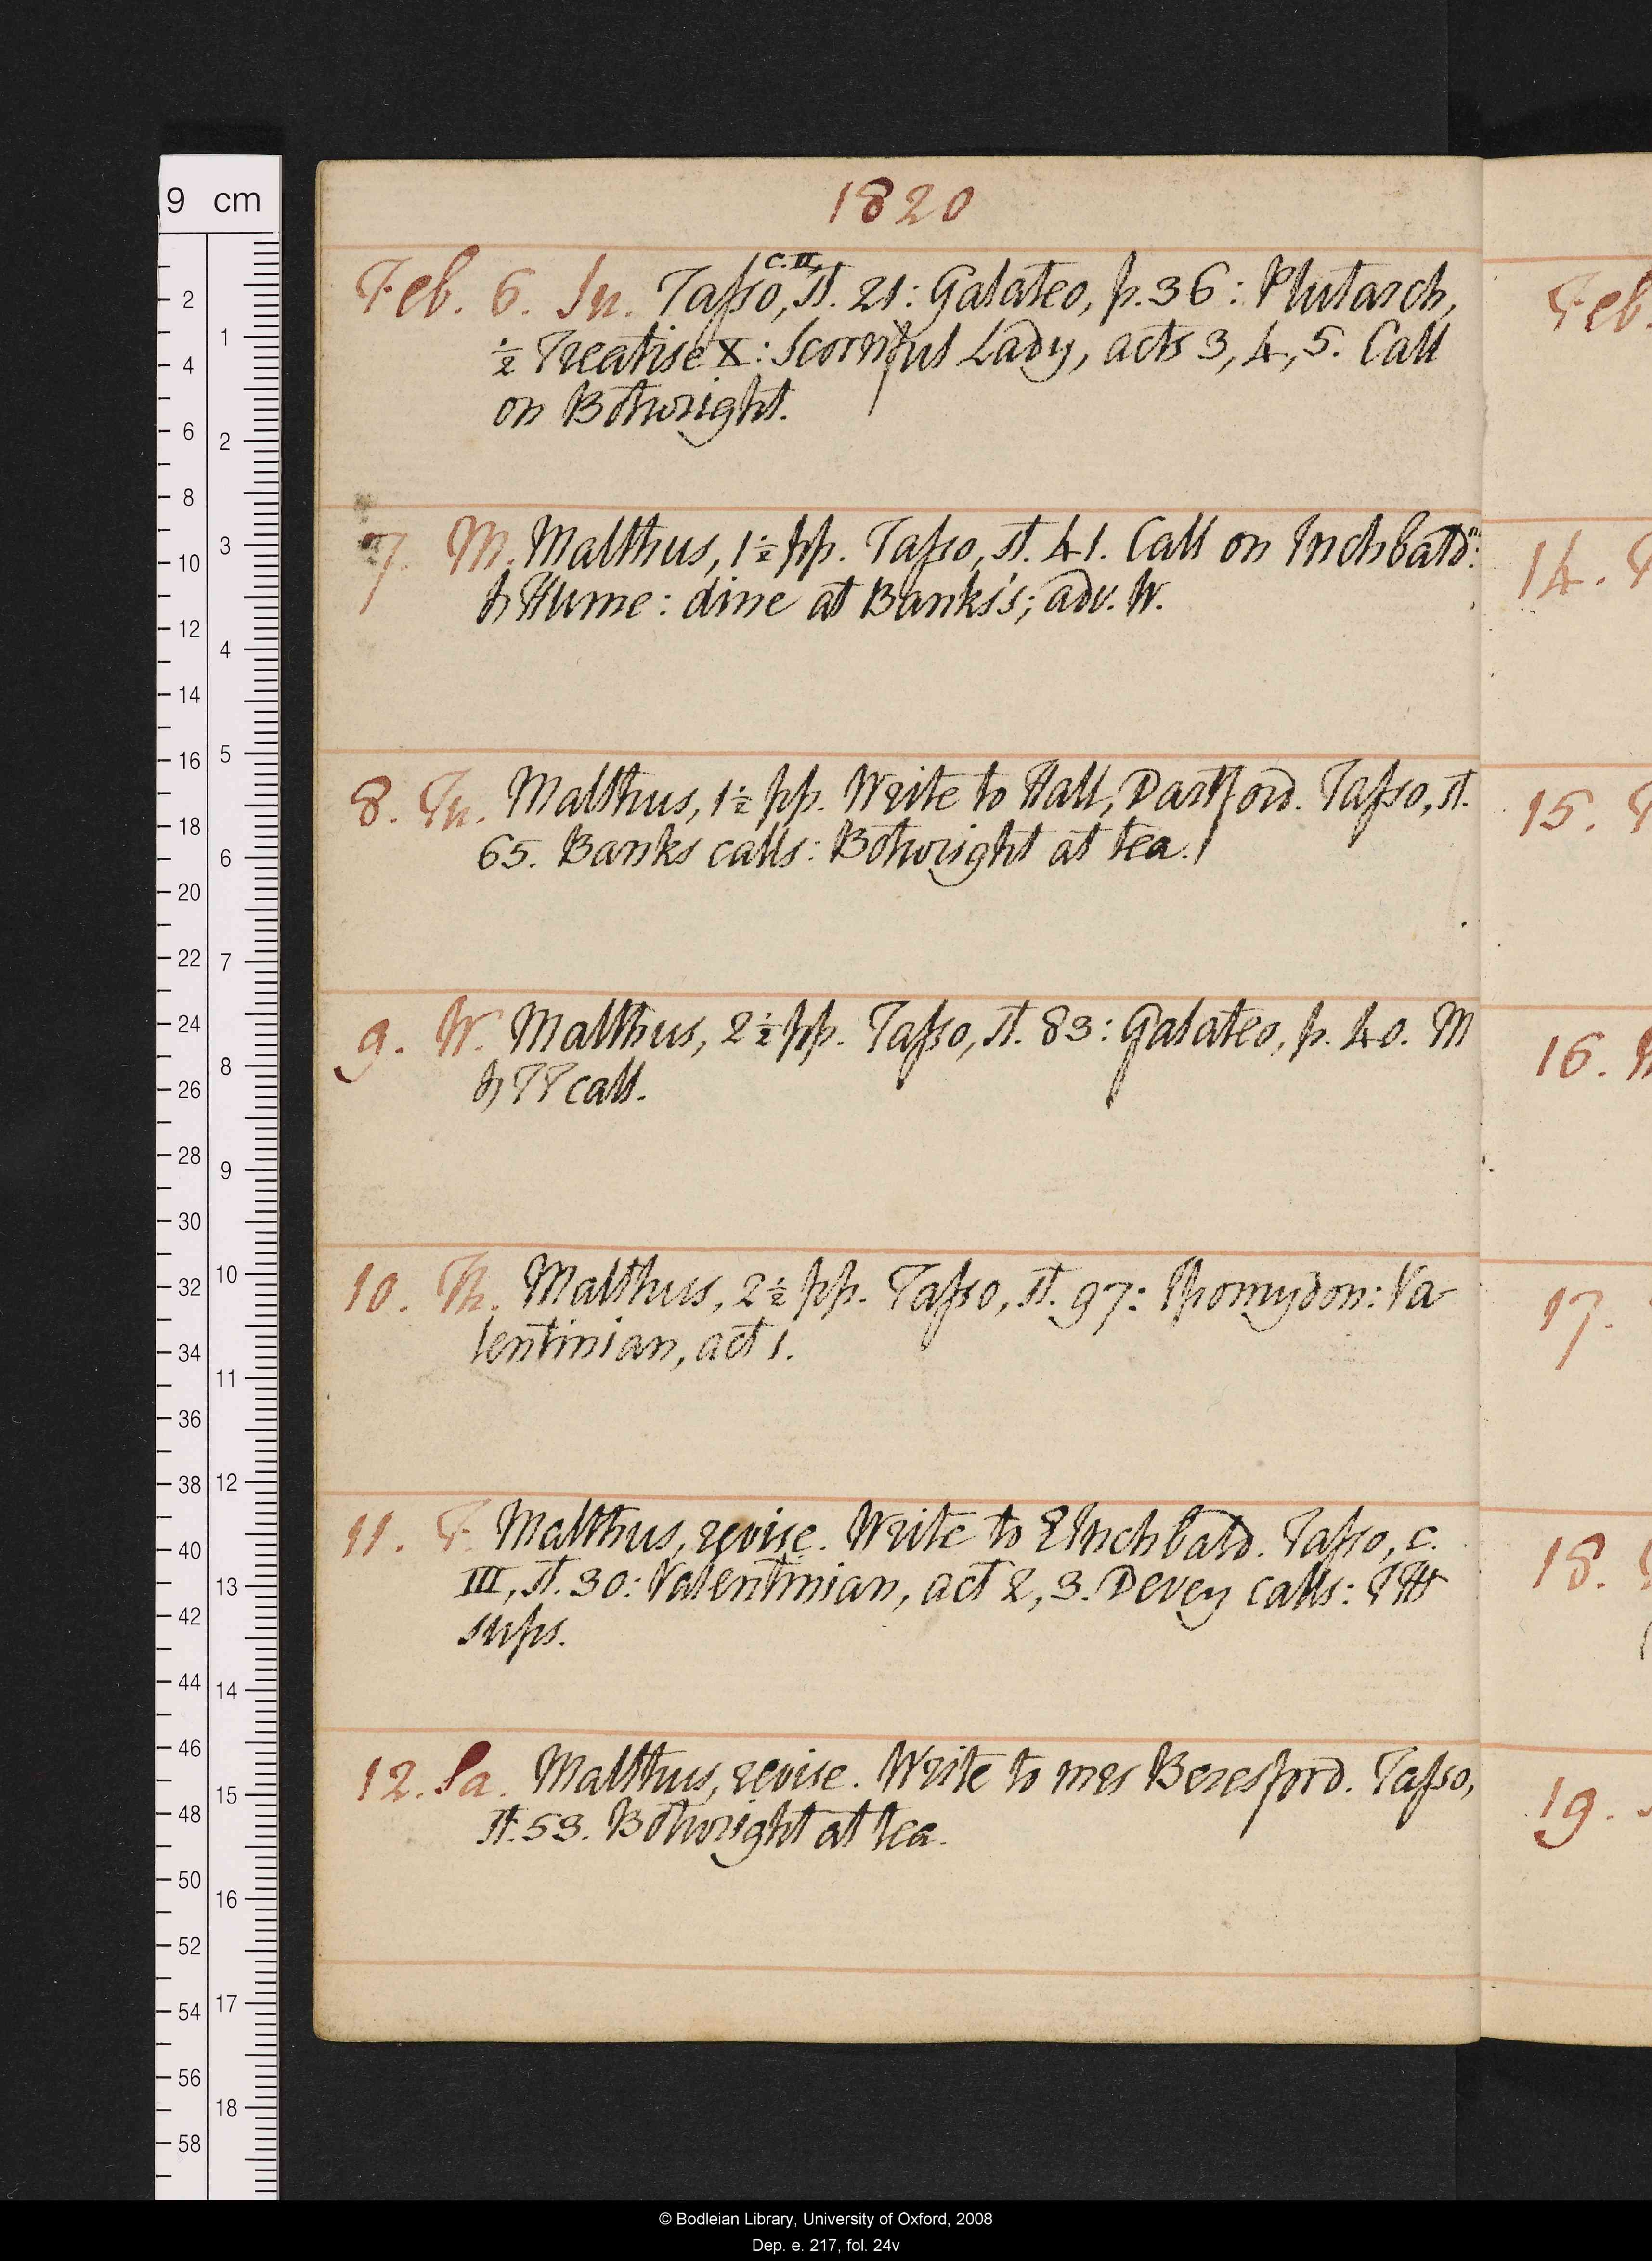 1820
Feb. 6. Su. Taſso, c. II, st. 21: Galateo, p. 36: Plutarch,
½ Treatise X: Scornful Lady, acts 3, 4, 5. Call
on Bothwright.
7. M. Malthus, 1½ pp. Taſso, st. 41. Call on Inchbald n:
& Hume: dine at Banks's; adv. W.
8. Tu. Malthus, 1½ pp. Write to Hall, Dartford. Taſso, st.
65. Banks calls: Bothwright at tea.
9. W. Malthus, 2½ pp. Taſso, st. 83: Galateo, p. 40. M
& TT call.
10. Th. Malthus, 2½ pp. Taſso, st. 97: Ipomydon: Va-
lentinian, act 1.
11. F. Malthus, revise. Write to E Inchbald. Taſso, c.
III, st. 30: Valentinian, act 2, 3. Devey calls: TH
sups.
12. Sa. Malthus, revise. Write to mrs Beresford. Taſso,
st. 53. Bothwright at tea.
Feb.
14.
15.
16.
17.
18.
19.
9 cm
2
4
6
8
10
12
14
16
18
20
22
24
26
28
30
32
34
36
38
40
42
44
46
48
50
52
54
56
58
1
2
3
4
5
6
7
8
9
10
11
12
13
14
15
16
17
18
© Bodleian Library, University of Oxford, 2008
Dep. e. 217, fol. 24v